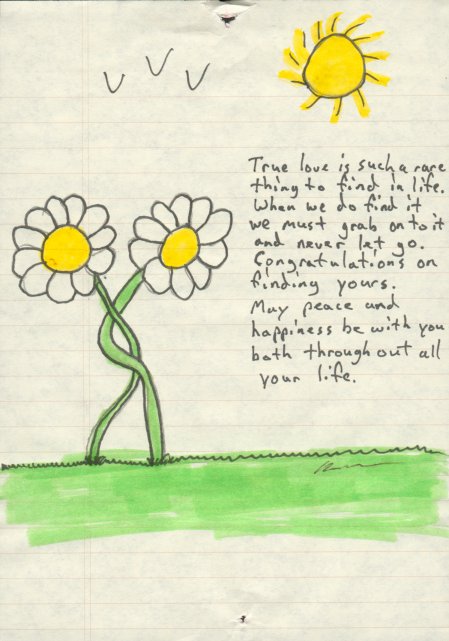 True love is such a rare
thing to find in life.
When we do find it
we must grab onto it
and never let go.
Congratulations on
finding yours.
May peace and
happiness be with you
both through out all
your life.